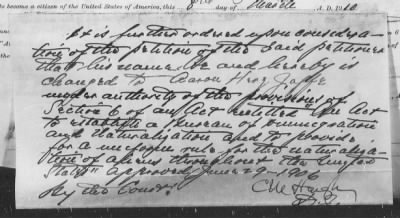 to become a citizen of the United States of America, this 8th day of March A.D. 1910
It is further ordered upon considera-
tion of the petition of the said petitioner
that his name be and hereby is
changed to Aaron Jaffe
under authority of the provisions of
Section 6 of an Act entitled "An Act
to establish a bureau of immigration
and naturalization and to provide
for a uniform rule for the naturaliza-
tion of aliens throughout the United
States" approved June 29, 1906
By the Court: